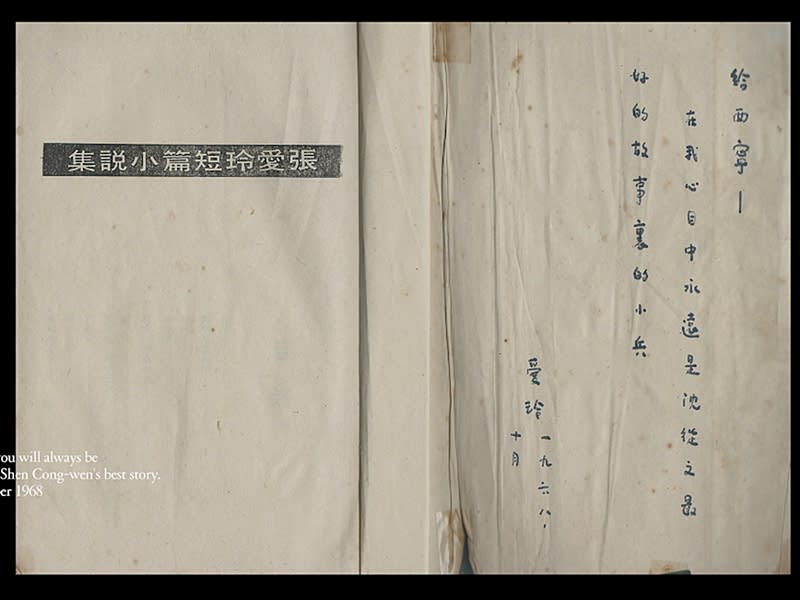 張愛玲短篇小説集
給西寧—
在我心目中永遠是沈從文最
好的故事裏的小兵
愛玲
一九六八、
十月
you will always be
Shen Cong-wen's best story.
er 1968